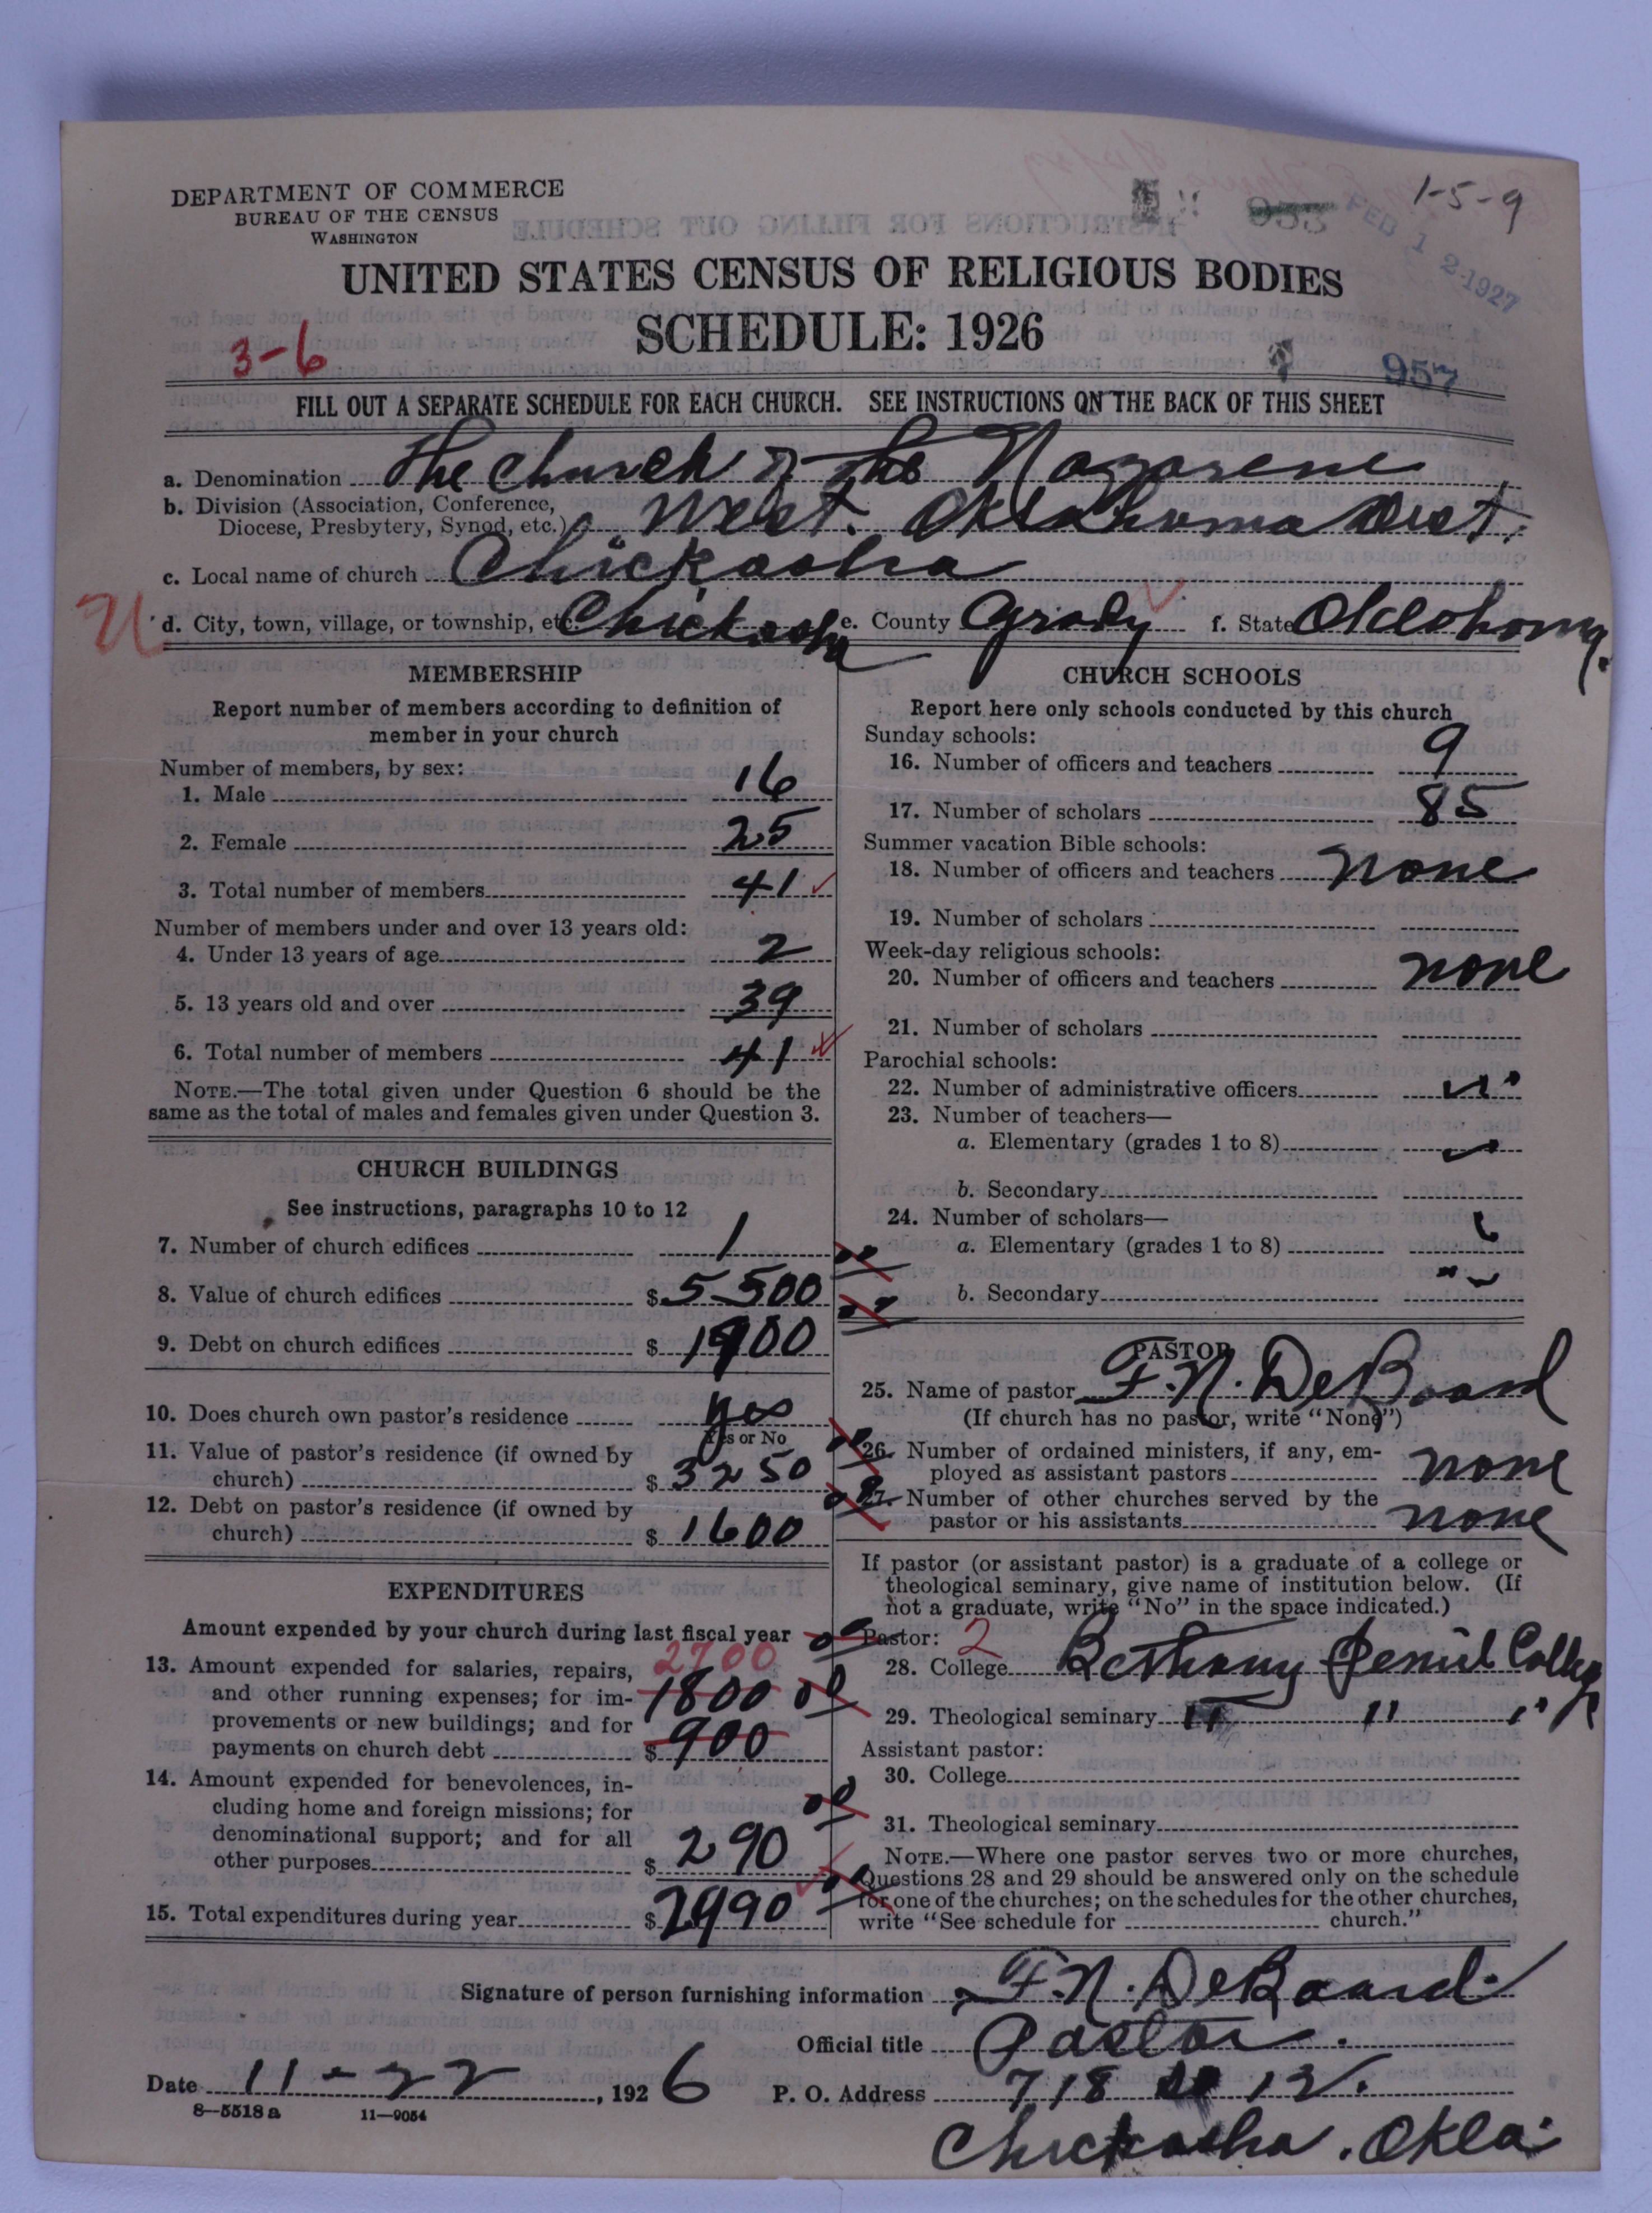 DEPARTMENT OF COMMERCE
BUREAU OF THE CENSUS
WASHINGTON
1-5-9
FEB 12 1927
UNITED STATES CENSUS OF RELIGIOUS BODIES
SCHEDULE: 1926
3-6
957
FILL OUT A SEPARATE SCHEDULE FOR EACH CHURCH. SEE INSTRUCTIONS ON THE BACK OF THIS SHEET
a. Denomination The Church of the Nazarene
b. Division (Association, Conference,
Diocese, Presbytery, Synod, etc.) West. Oklahoma Dist.
c. Local name of church Chickasha
d. City, town, village, or township, etc. Chickasha e. County Grady f. State Oklahoma.
MEMBERSHIP
Report number of members according to definition of
member in your church
Number of members, by sex:
1. Male 16
2. Female 25
3. Total number of members 41
Number of members under and over 13 years old:
4. Under 13 years of age 2
5. 13 years old and over 39
6. Total number of members 41
NOTE.—The total given under Question 6 should be the
same as the total of males and females given under Question 3.
CHURCH BUILDINGS
See instructions, paragraphs 10 to 12
7. Number of church edifices 1
8. Value of church edifices $5500
9. Debt on church edifices $1900
10. Does church own pastor's residence yes
Yes or No
11. Value of pastor's residence (if owned by
church) $3250
12. Debt on pastor's residence (if owned by
church) $1600
EXPENDITURES
Amount expended by your church during last fiscal year
13. Amount expended for salaries, repairs, 2700
and other running expenses; for im- 1800
provements or new buildings; and for
payments on church debt $900
14. Amount expended for benevolences, in-
cluding home and foreign missions; for
denominational support; and for all
other purposes $290
15. Total expenditures during year $2990
CHURCH SCHOOLS
Report here only schools conducted by this church
Sunday schools:
16. Number of officers and teachers 9
17. Number of scholars 85
Summer vacation Bible schools:
18. Number of officers and teachers none
19. Number of scholars
Week-day religious schools:
20. Number of officers and teachers none
21. Number of scholars
Parochial schools:
22. Number of administrative officers
23. Number of teachers—
a. Elementary (grades 1 to 8)
b. Secondary
24. Number of scholars—
a. Elementary (grades 1 to 8)
b. Secondary
PASTOR
25. Name of pastor F. N. DeBoard
(If church has no pastor, write "None")
26. Number of ordained ministers, if any, em-
ployed as assistant pastors none
27. Number of other churches served by the
pastor or his assistants none
If pastor (or assistant pastor) is a graduate of a college or
theological seminary, give name of institution below. (If
not a graduate, write "No" in the space indicated.)
Pastor: 2
28. College Bethany Peniel College
29. Theological seminary " " "
Assistant pastor:
30. College
31. Theological seminary
NOTE.—Where one pastor serves two or more churches,
Questions 28 and 29 should be answered only on the schedule
for one of the churches; on the schedules for the other churches,
write "See schedule for church."
Signature of person furnishing information F. N. DeBoard
Official title Pastor.
Date 11-22, 1926 P. O. Address 718 12.
8-5518 a 11-9054
Chickasha. Okla.